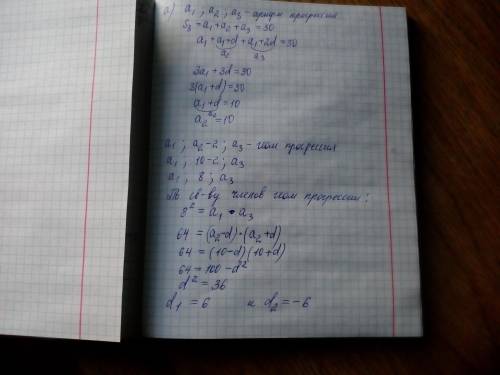 а) a₁ ; a₂ ; a₃ - арифм прогрессия
S₃ = a₁ + a₂ + a₃ = 30
a₁ + a₁+d + a₁+2d = 30
a₂ a₃
3a₁ + 3d = 30
3(a₁ + d) = 30
a₁ + d = 10
a₂
a₂ = 10
a₁ ; a₂-2 ; a₃ - геом прогрессия
a₁ ; 10-2 ; a₃
a₁ ; 8 ; a₃
По св-ву членов геом прогрессии:
8² = a₁ • a₃
64 = (a₂-d)•(a₂+d)
64 = (10-d)(10+d)
64 = 100 - d²
d² = 36
d₁ = 6 и d₂ = -6